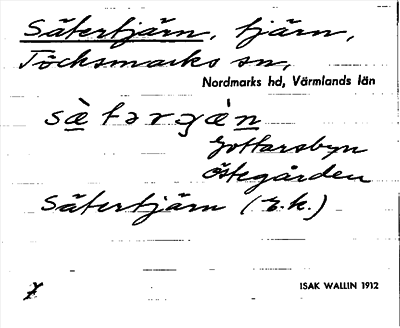 Sätertjärn, tjärn,
Töcksmarks sn,
Nordmarks hd, Värmlands län
sæ̀tərʒæ̀n
Gottarsbyn
Östegården
Sätertjärn (g.k.)
ISAK WALLIN 1912